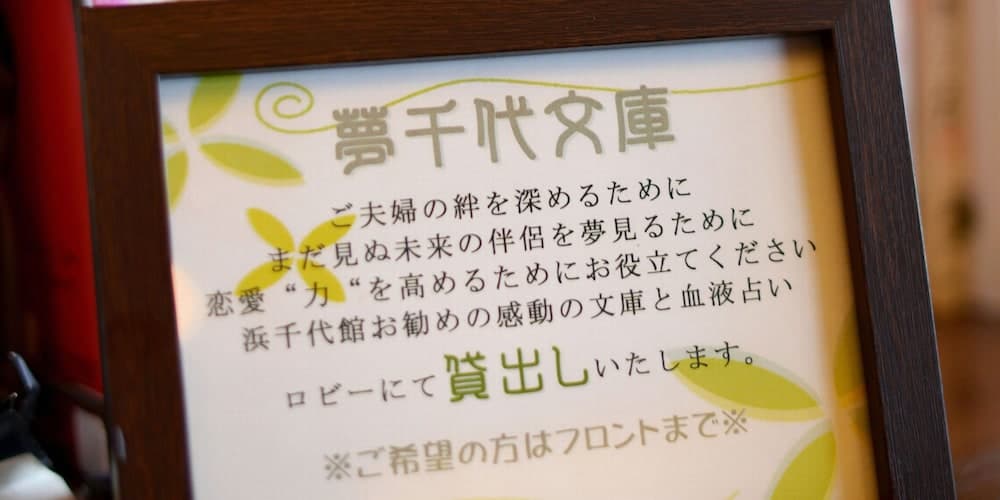 夢千代文庫
ご夫婦の絆を深めるために
まだ見ぬ未来の伴侶を夢見るために
恋愛“力“を高めるためにお役立てください
浜千代館お勧めの感動の文庫と血液占い
ロビーにて貸出しいたします。
※ご希望の方はフロントまで※